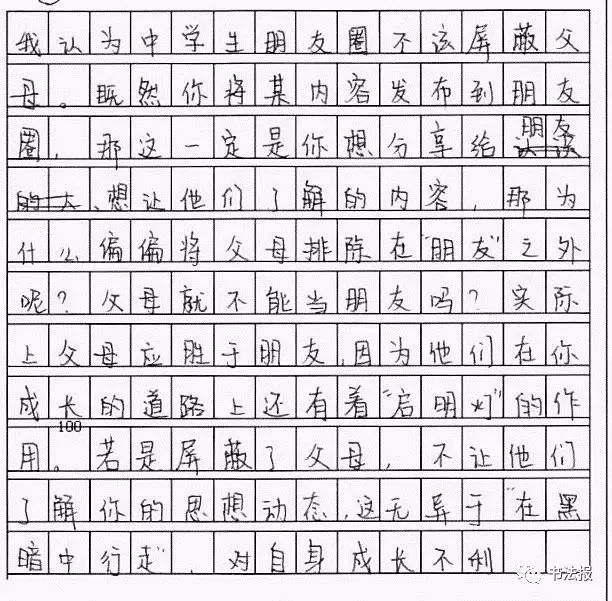 我认为中学生朋友圈不该屏蔽父
母。既然你将某内容发布到朋友
圈，那这一定是你想分享给朋友
、想让他们了解的内容，那为
什么偏偏将父母排除在“朋友”之外
呢？父母就不能当朋友吗？实际
上父母应胜于朋友，因为他们在你
成长的道路上还有着“启明灯”的作
100
用。若是屏蔽了父母，不让他们
了解你的思想动态，这无异于“在黑
暗中行走”，对自身成长不利
书法报